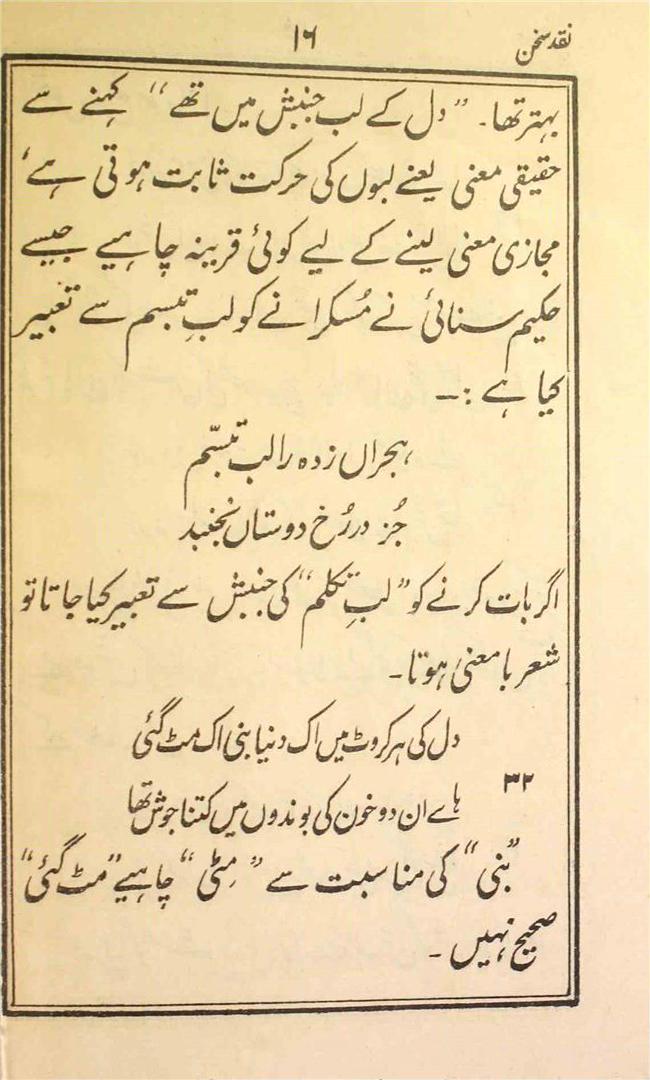 نقد سخن
۱۶
بہتر تھا۔ ”دل کے لب جنبش میں تھے“ کہنے سے
حقیقی معنی یعنے لبوں کی حرکت ثابت ہوتی ہے،
مجازی معنی لینے کے لیے کوئی قرینہ چاہیے جیسے
حکیم سنائی نے مُسکرانے کو لبِ تبسم سے تعبیر
کیا ہے :۔
ہجراں زدہ را لب تبسّم
جُز در رُخ دوستاں نجنبد
اگر بات کرنے کو ”لبِ تکلم“ کی جنبش سے تعبیر کیا جاتا تو
شعر بامعنی ہوتا۔
دل کی ہر کروٹ میں اک دنیا بنی اک مٹ گئی
۳۲
ہاے ان دو خون کی بوندوں میں کتنا جوش تھا
”بنی“ کی مناسبت سے ”مِٹی“ چاہیے ”مٹ گئی“
صحیح نہیں۔